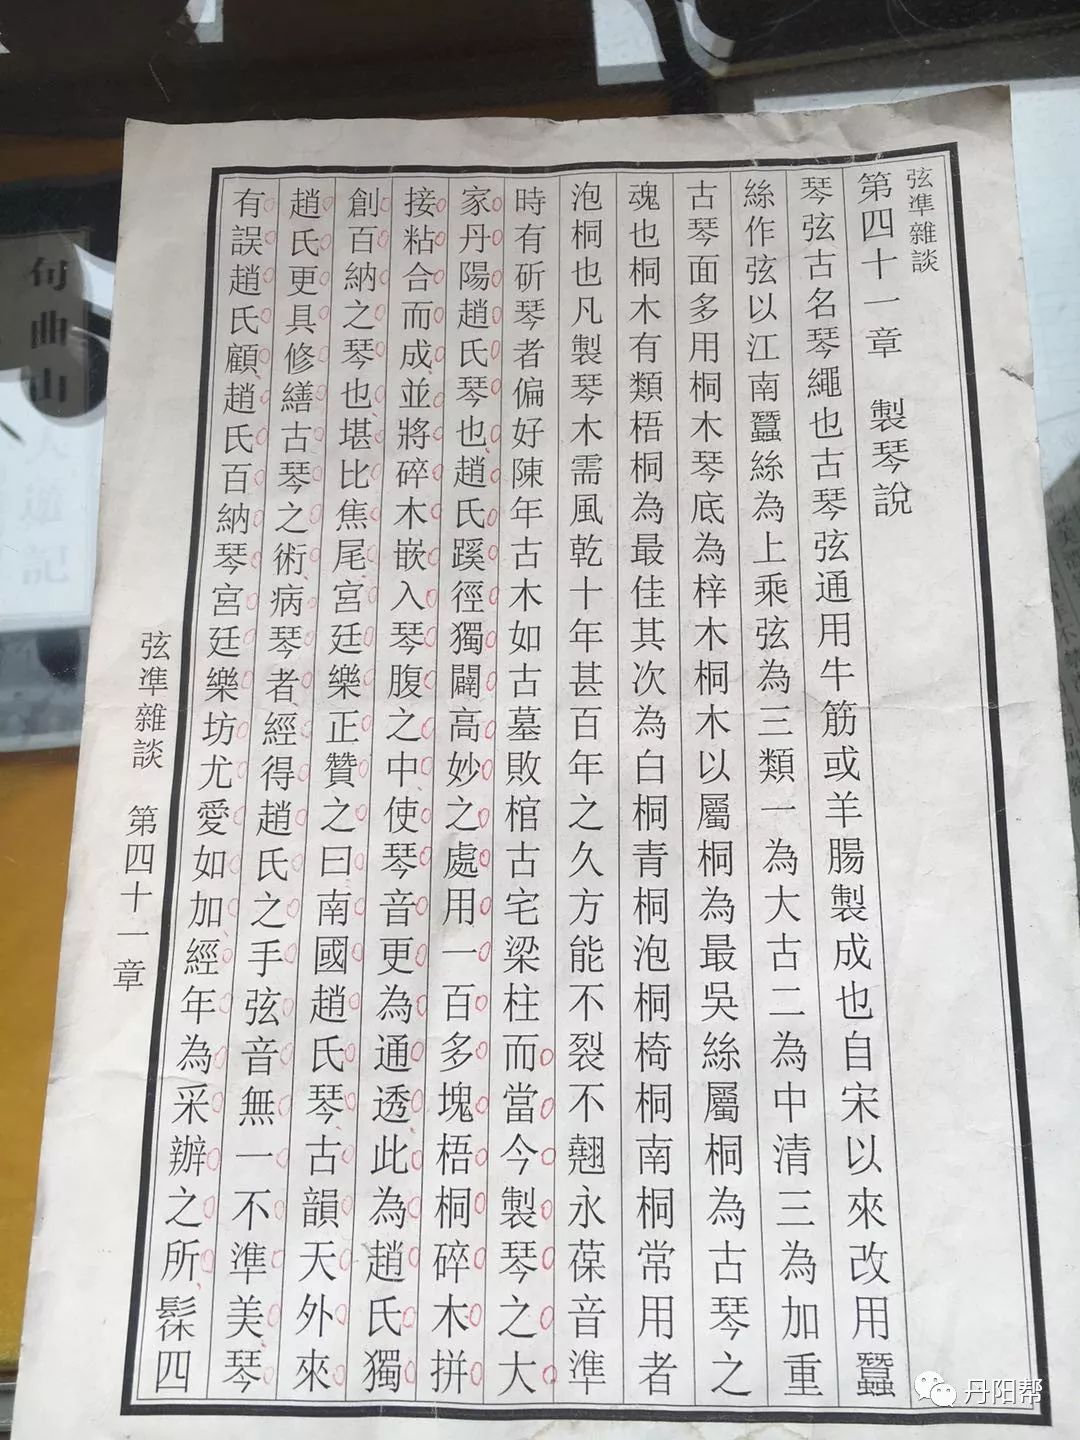 弦準雜談
第四十一章　製琴說
琴弦古名琴繩也古琴弦通用牛筋或羊腸製成也自宋以來改用蠶
絲作弦以江南蠶絲為上乘弦為三類一為大古二為中清三為加重
古琴面多用桐木琴底為梓木桐木以屬桐為最吳絲屬桐為古琴之
魂也桐木有類梧桐為最佳其次為白桐青桐泡桐椅桐南桐常用者
泡桐也凡製琴木需風乾十年甚百年之久方能不裂不翹永葆音準
時有斫琴者偏好陳年古木如古墓敗棺古宅梁柱而當今製琴之大
家丹陽趙氏琴也趙氏蹊徑獨闢高妙之處用一百多塊梧桐碎木拼
接粘合而成並將碎木嵌入琴腹之中使琴音更為通透此為趙氏獨
創百納之琴也堪比焦尾宮廷樂正贊之曰南國趙氏琴古韻天外來
趙氏更具修繕古琴之術病琴者經得趙氏之手弦音無一不準美琴
有誤趙氏顧趙氏百納琴宮廷樂坊尤愛如加經年為采辦之所髹四
弦準雜談　第四十一章
句曲山
記
丹阳帮